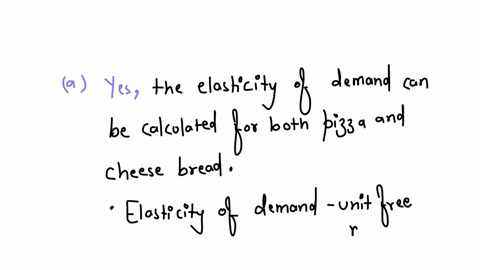 (a) Yes, the elasticity of demand can
be calculated for both pizza and
cheese bread.
• Elasticity of demand - unit free
r